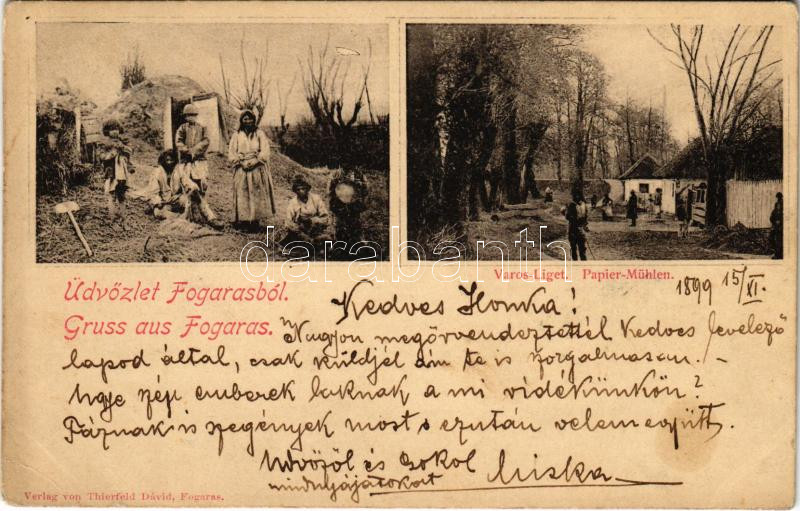 darabanth
Varos-Liget. Papier-Mühlen.
Üdvözlet Fogarasból.
Gruss aus Fogaras.
1899 15/XI.
Kedves Ilonka!
Nagyon megörvendeztettél kedves levelező
lapod által, csak küldjél ám te is szorgalmasan.
Ugye szép emberek laknak a mi vidékünkön?
Fáznak is szegények most s ezután velem együtt.
Üdvözöl és csokol Miska
mindnyájatokat
Verlag von Thierfeld Dávid, Fogaras.